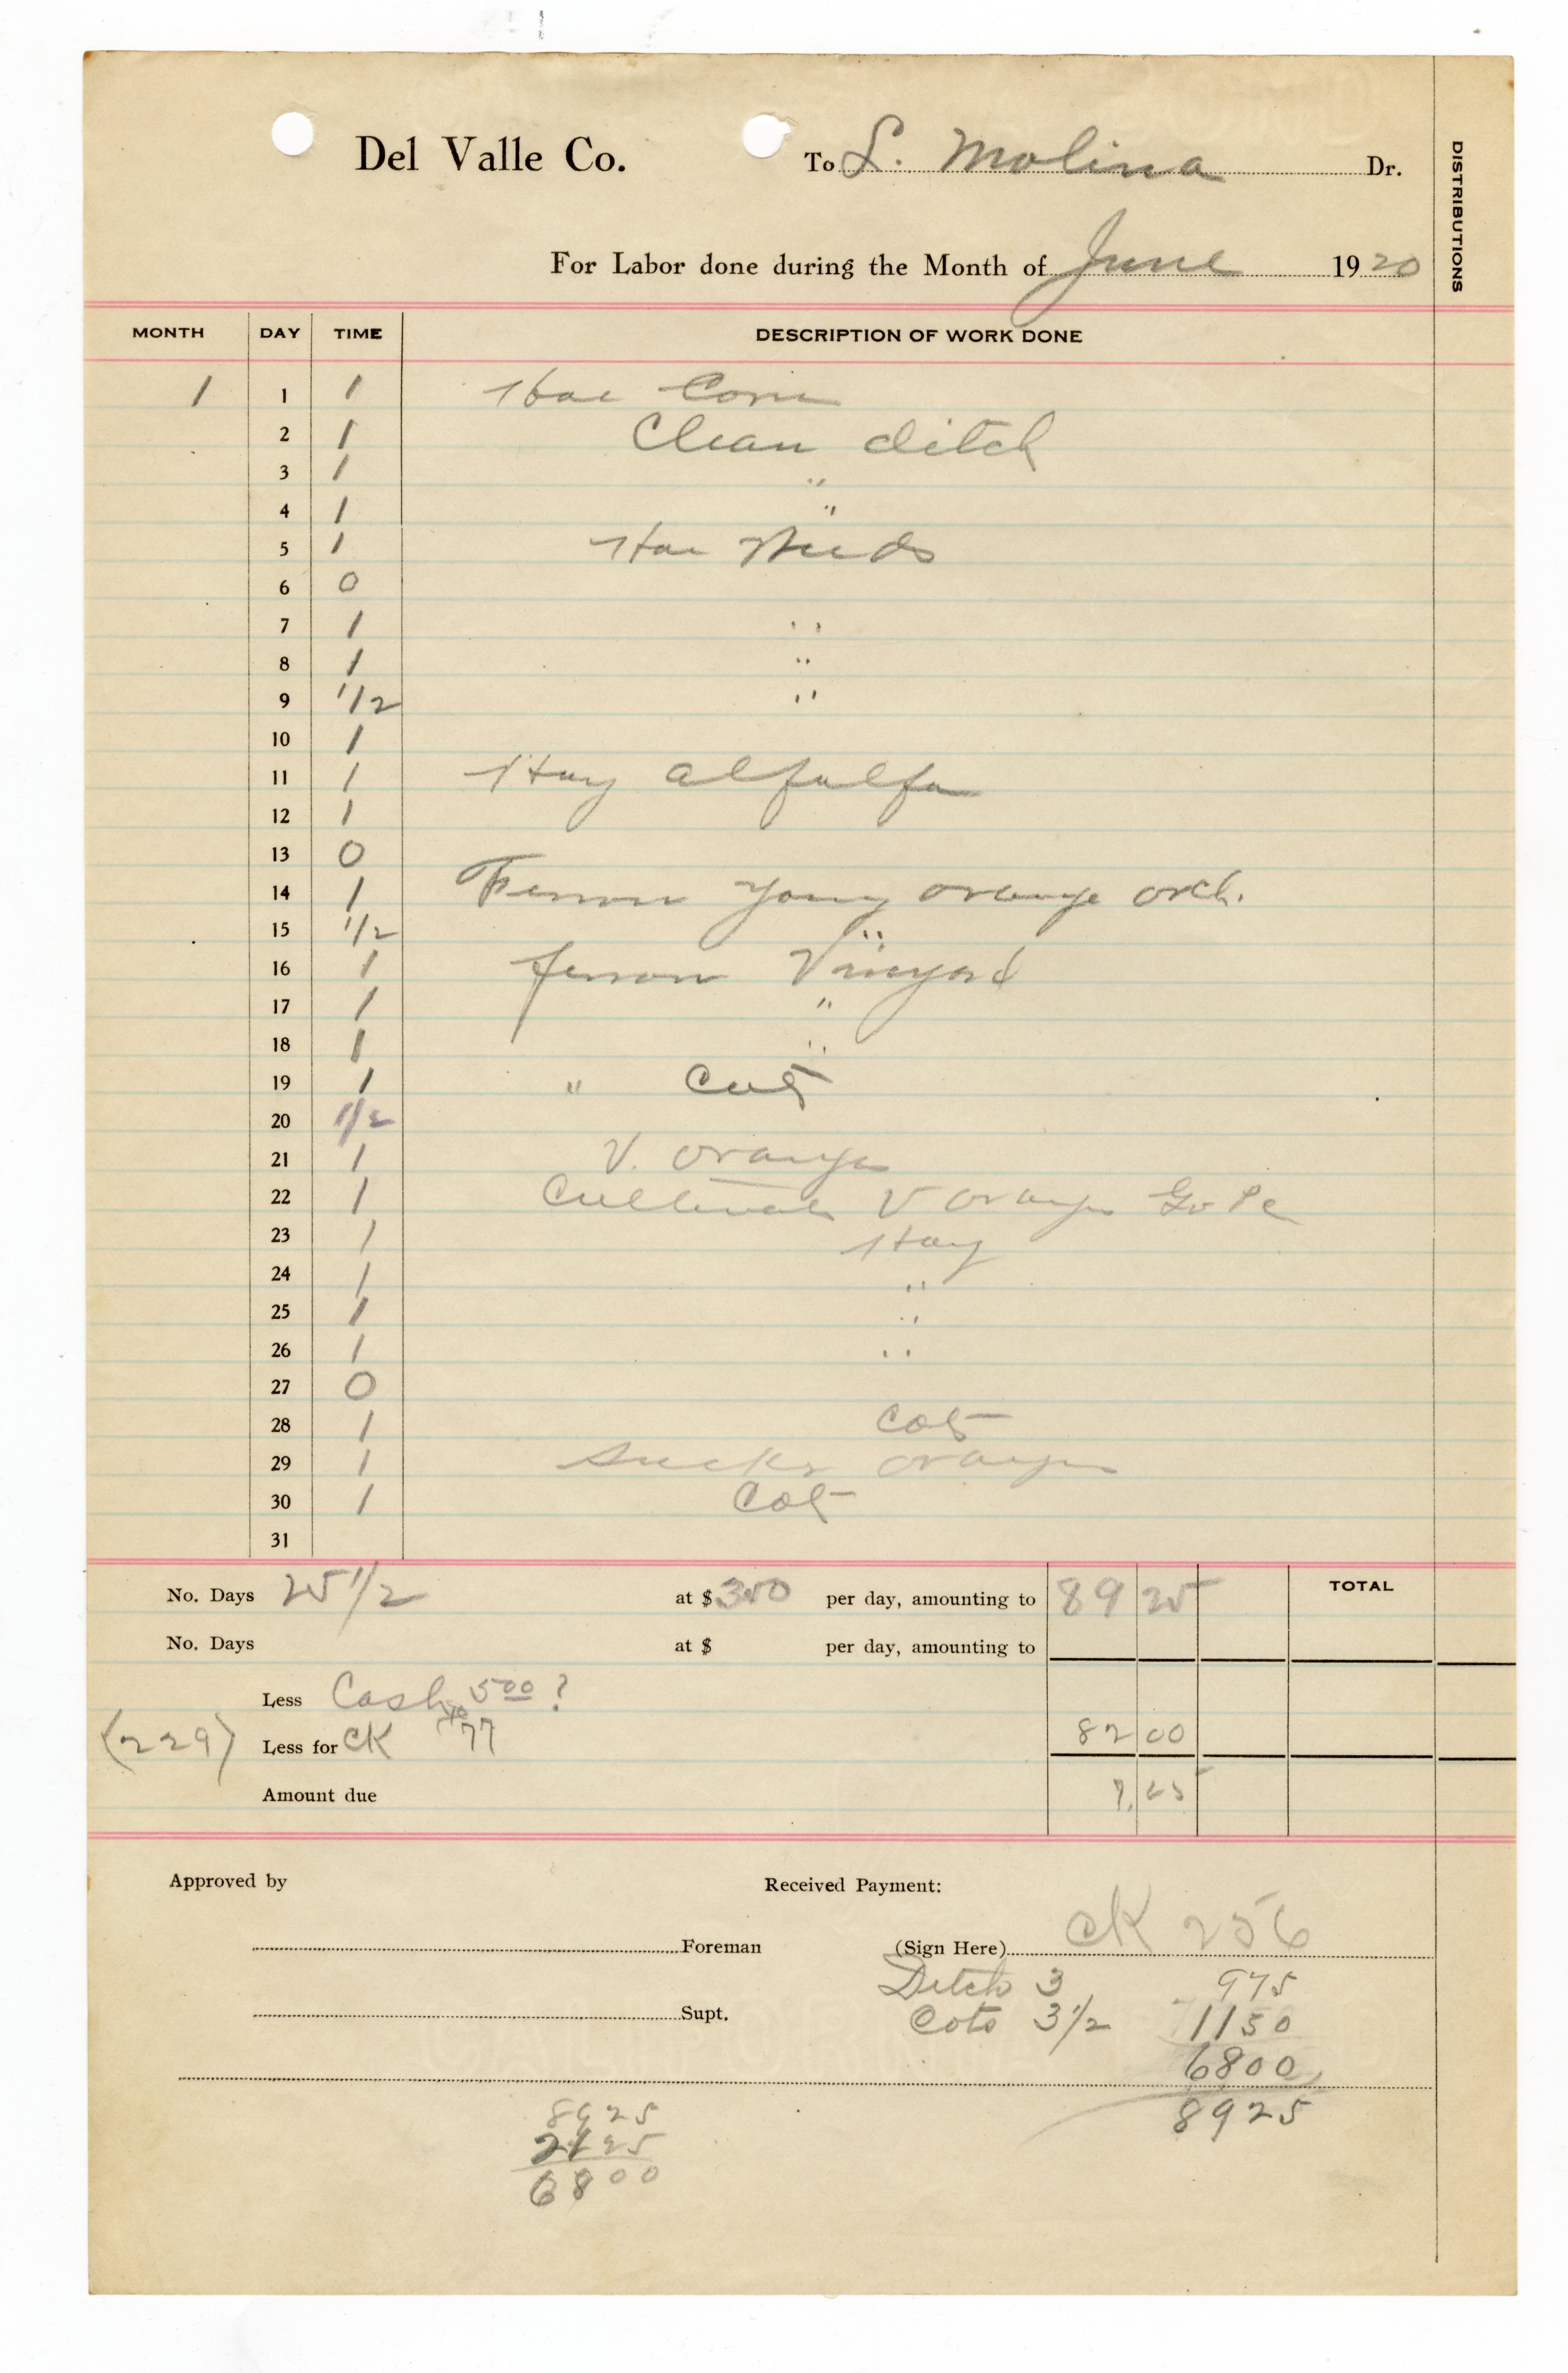 Del Valle Co. To L. Molina Dr.
DISTRIBUTIONS
For Labor done during the Month of June 1920
MONTH DAY TIME DESCRIPTION OF WORK DONE
1 1 1 Hoe Corn
2 1 Clean ditch
3 1 "
4 1 "
5 1 Hoe Weeds
6 0
7 1 "
8 1 "
9 1/2 "
10 1
11 1 Hay alfalfa
12 1
13 0
14 1 Young orange orch.
15 1/2 "
16 1 Vineyard
17 1 "
18 1 "
19 1 " Cots
20 1/2
21 1 V. oranges
22 1 Cultivate V oranges
23 1 Hay
24 1 "
25 1 "
26 1 "
27 0
28 1 Cots
29 1 Sucker oranges
30 1 Cots
31
No. Days 25 1/2 at $ 350 per day, amounting to 89 25 TOTAL
No. Days at $ per day, amounting to
Less Cash 500 ?
(229) Less for CK 77 82 00
Amount due 7.25
Approved by Received Payment:
Foreman (Sign Here) CK 256
Ditch 3 975
Supt. Cots 3 1/2 1150
6800
8925
8925
2125
6800